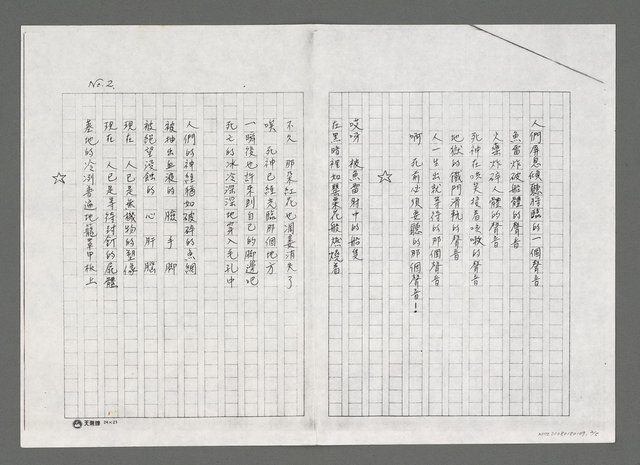 No. 2
人們屏息傾聽將臨的一個聲音
魚雷炸破船體的聲音
火藥炸碎人體的聲音
死神在嗤笑接著咳嗽的聲音
地獄的鐵門滑軌的聲音
人一生出就等待的那個聲音
啊 死前必須要聽的那個聲音！
☆
哎呀 被魚雷射中的船隻
在黑暗裡如罌粟花般燃燒著
不久 那朵紅花也凋萎消失了
唉 死神已經光臨那個地方
一瞬後也許來到自己的腳邊吧
死亡的冰冷深深地穿入毛孔中
人們的神經猶如破碎的魚網
被抽出血液的 臉 手 腳
被絕望浸蝕的 心 肝 腦
現在 人已是無機物的塑像
現在 人已是等待封釘的屍體
墓地的冷冽普遍地籠罩甲板上
☆
天鵝牌 24×25